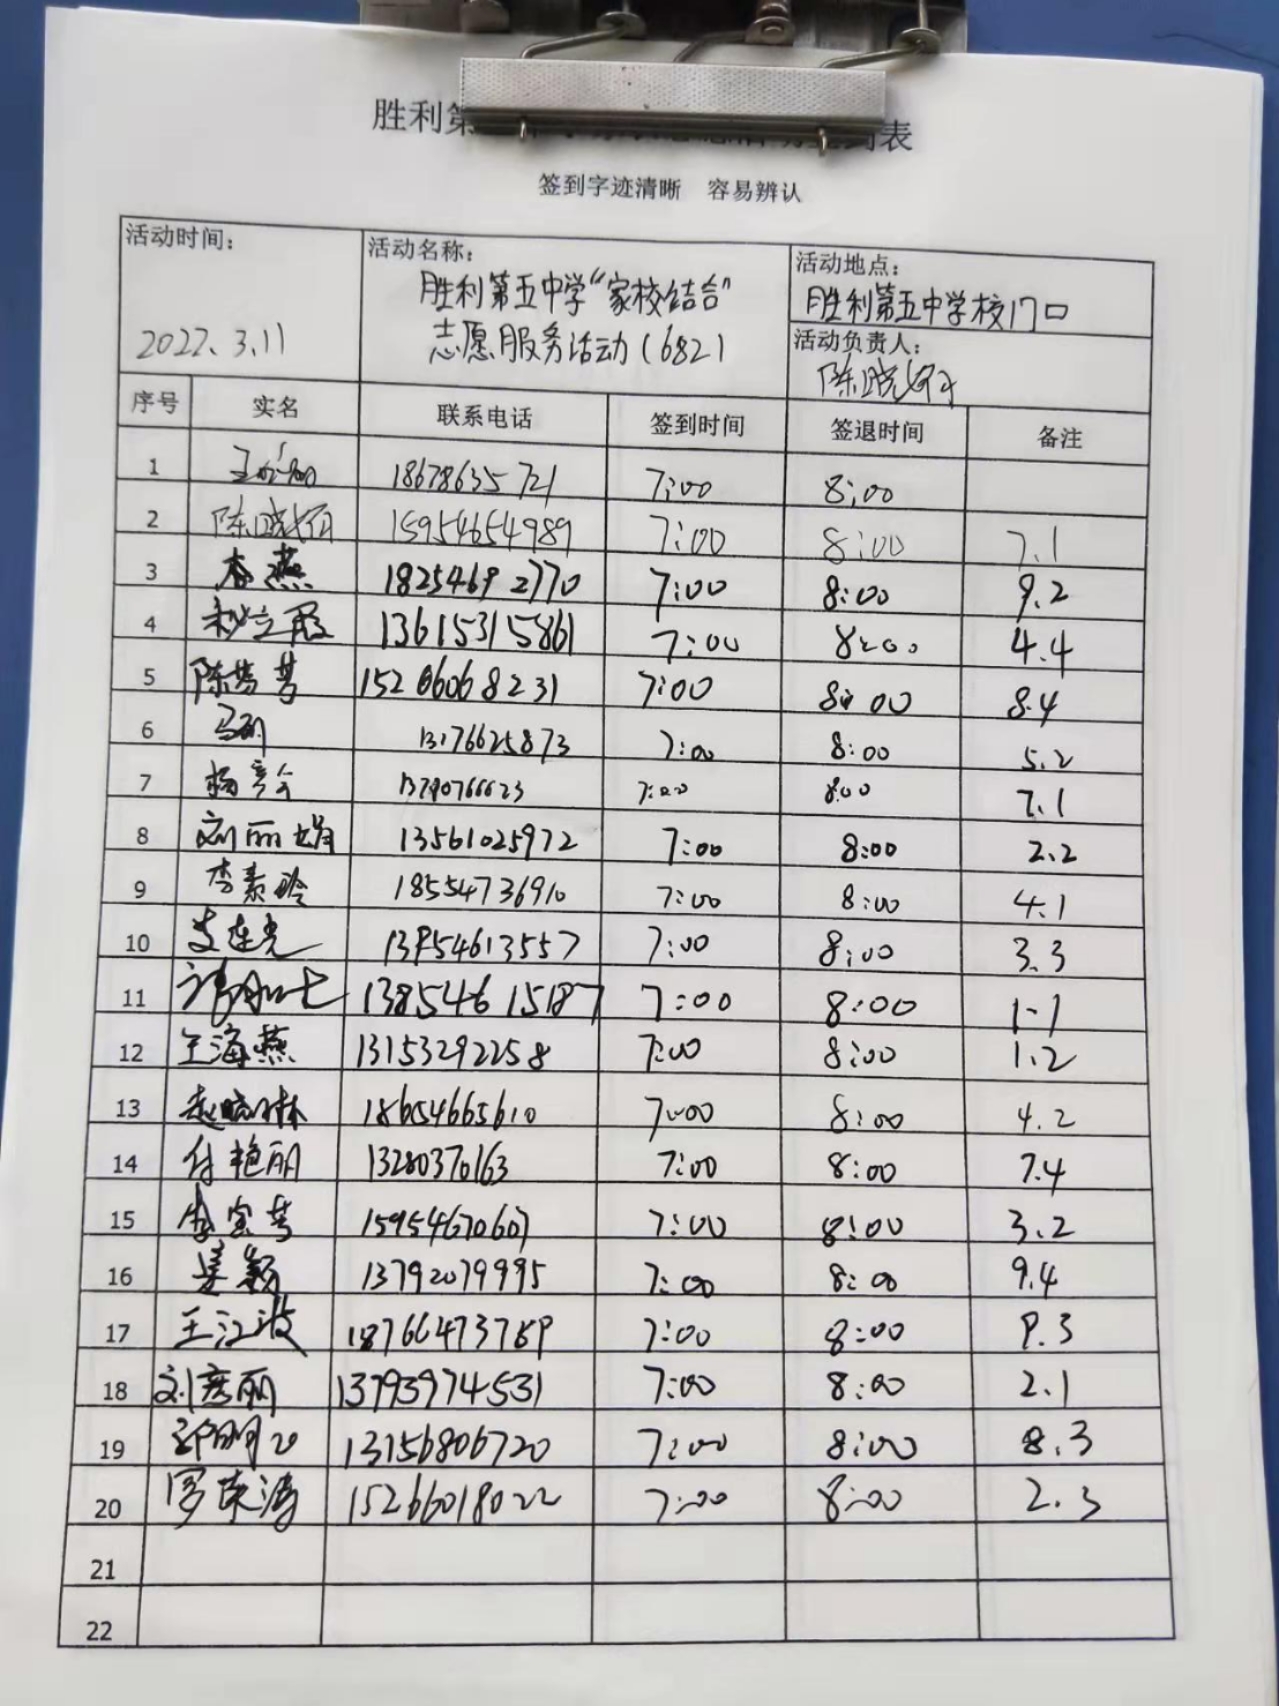 胜利第 表
签到字迹清晰 容易辨认
活动时间： 活动名称： 活动地点：
胜利第五中学“家校结合” 胜利第五中学校门口
2022.3.11 志愿服务活动(682) 活动负责人：
陈晓
序号 实名 联系电话 签到时间 签退时间 备注
1 18678635721 7:00 8:00
2 陈晓 15954654989 7:00 8:00 7.1
3 李燕 18254692770 7:00 8:00 9.2
4 13615315861 7:00 8:00 4.4
5 15266068231 7:00 8:00 8.4
6 13176625873 7:00 8:00 5.2
7 杨彦令 13790766623 7:00 8:00 7.1
8 刘丽娟 13561025972 7:00 8:00 2.2
9 李素玲 18554736910 7:00 8:00 4.1
10 支连光 13954613557 7:00 8:00 3.3
11 13854615187 7:00 8:00 1.1
12 王海燕 13153292258 7:00 8:00 1.2
13 赵晓林 18654665610 7:00 8:00 4.2
14 付艳丽 13280370163 7:00 8:00 7.4
15 李宝芳 15954670607 7:00 8:00 3.2
16 姜颖 13792079995 7:00 8:00 9.4
17 王江波 18766473789 7:00 8:00 9.3
18 刘彦丽 13793974531 7:00 8:00 2.1
19 13156806720 7:00 8:00 8.3
20 罗荣涛 15266018022 7:00 8:00 2.3
21
22